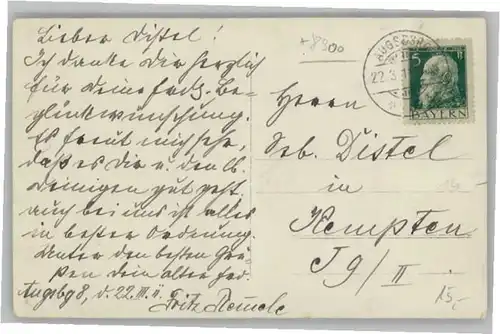 Lieber Distel!
Ich danke Dir herzlich
für Deine frdl. Be-
glückwünschung.
Es freut mich sehr,
daß es Dir u. den lb.
Deinigen gut geht.
auch bei uns ist alles
in bester Ordnung.
Unter den besten Grü-
ßen Dein alter
Augsbg 8, d. 22.III.
Fritz
AUGSBURG
22.3.
5
BAYERN
Herrn
Seb. Distel
in
Kempten
J9/II
15,-